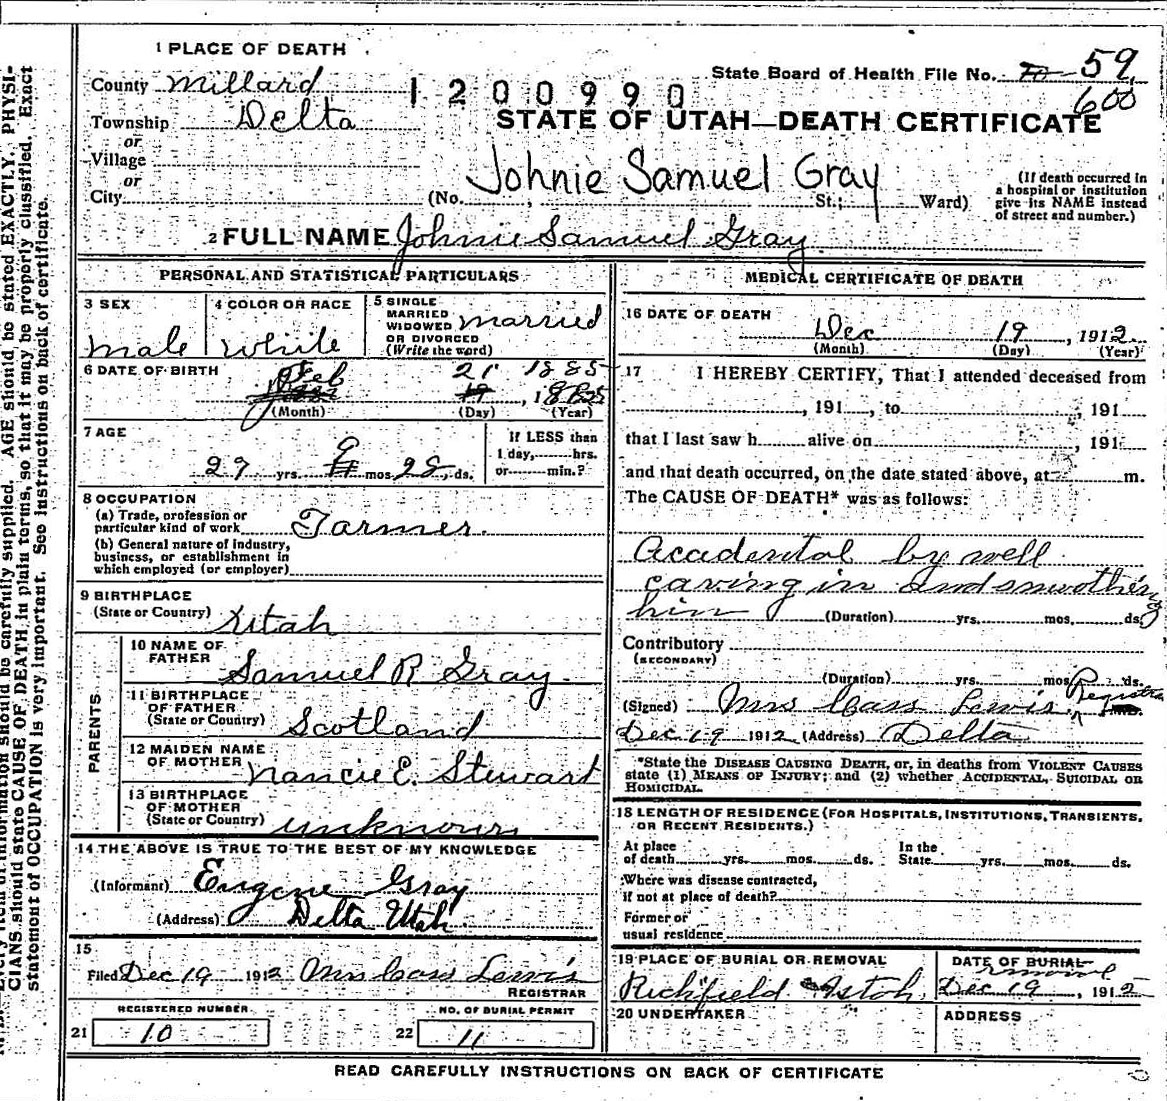 1 PLACE OF DEATH
County Millard
1200990
State Board of Health File No. 59
600
Township Delta
STATE OF UTAH—DEATH CERTIFICATE
or
Village
or
City (No. , St.; Ward)
Johnie Samuel Gray
(If death occurred in
a hospital or institution
give its NAME instead
of street and number.)
2 FULL NAME Johnie Samuel Gray
PERSONAL AND STATISTICAL PARTICULARS
3 SEX
male
4 COLOR OR RACE
White
5 SINGLE
MARRIED
WIDOWED
OR DIVORCED
(Write the word)
married
6 DATE OF BIRTH
Feb 21 1885
19, 1885
(Month) (Day) (Year)
7 AGE
27 yrs. 9 mos. 28 ds.
If LESS than
1 day, hrs.
or min.?
8 OCCUPATION
(a) Trade, profession or
particular kind of work Farmer
(b) General nature of industry,
business, or establishment in
which employed (or employer)
9 BIRTHPLACE
(State or Country) Utah
PARENTS
10 NAME OF
FATHER Samuel R Gray
11 BIRTHPLACE
OF FATHER
(State or Country) Scotland
12 MAIDEN NAME
OF MOTHER Nancie E. Stewart
13 BIRTHPLACE
OF MOTHER
(State or Country) unknown
14 THE ABOVE IS TRUE TO THE BEST OF MY KNOWLEDGE
(Informant) Eugene Gray
(Address) Delta Utah
15
Filed Dec 19 1912 Mrs Cass Lewis
REGISTRAR
REGISTERED NUMBER
21 10
NO. OF BURIAL PERMIT
22 11
MEDICAL CERTIFICATE OF DEATH
16 DATE OF DEATH
Dec 19, 1912
(Month) (Day) (Year)
17 I HEREBY CERTIFY, That I attended deceased from
, 191 , to , 191
that I last saw h alive on , 191
and that death occurred, on the date stated above, at m.
The CAUSE OF DEATH* was as follows:
Accidental by well
caving in and smothering
him
(Duration) yrs. mos. ds.
Contributory
(SECONDARY)
(Duration) yrs. mos. ds.
(Signed) Mrs Cass Lewis, Registrar M.D.
Dec 19 1912 (Address) Delta
*State the DISEASE CAUSING DEATH, or, in deaths from VIOLENT CAUSES
state (1) MEANS OF INJURY; and (2) whether ACCIDENTAL, SUICIDAL OR
HOMICIDAL.
18 LENGTH OF RESIDENCE (FOR HOSPITALS, INSTITUTIONS, TRANSIENTS,
OR RECENT RESIDENTS.)
At place
of death yrs. mos. ds.
In the
State yrs. mos. ds.
Where was disease contracted,
if not at place of death?
Former or
usual residence
19 PLACE OF BURIAL OR REMOVAL
Richfield Utah
DATE OF BURIAL
removal
Dec 19, 1912
20 UNDERTAKER
ADDRESS
READ CAREFULLY INSTRUCTIONS ON BACK OF CERTIFICATE
information should be carefully supplied. AGE should be stated EXACTLY. PHYSI-
CIANS should state CAUSE OF DEATH in plain terms, so that it may be properly classified. Exact
statement of OCCUPATION is very important. See instructions on back of certificate.